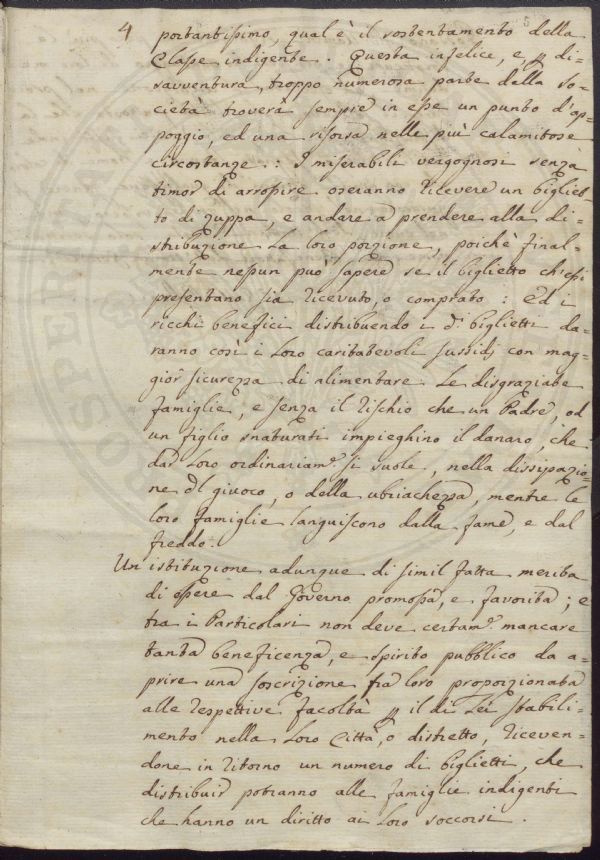 4
portantissimo, qual è il sostentamento della
Classe indigente. Questa infelice, e p di=
savventura, troppo numerosa parte della So=
cietà troverà sempre in esse un punto d'ap=
poggio, ed una risorsa nelle più calamitose
circostanze.: I miserabili vergognosi senza
timor di arrossire oseranno ricevere un bigliet=
to di zuppa, e andare a prendere alla di=
stribuzione la loro porzione, poichè final=
mente nessun può sapere se il biglietto ch'essi
presentano sia ricevuto, o comprato: Ed i
ricchi benefici distribuendo i d.i biglietti da=
ranno così i loro caritatevoli sussidj con mag=
gior sicurezza di alimentare le disgraziate
famiglie, e senza il rischio che un Padre, od
un figlio snaturati impieghino il danaro, che
dar loro ordinariam.e si suole, nella dissipazio=
ne dl giuoco, o della ubriachezza, mentre le
loro famiglie languiscono dalla fame, e dal
freddo.
Un istituzione adunque di simil fatta merita
di essere dal Governo promossa, e favorita; e
tra i Particolari non deve certam.e mancare
tanta beneficenza, e spirito pubblico da a=
prire una soscrizione fra loro proporzionata
alle respettive facoltà p il di Lei Stabili=
mento nella loro Città, o distretto, riceven=
done in ritorno un numero di biglietti, che
distribuir potranno alle famiglie indigenti
che hanno un diritto ai loro soccorsi.